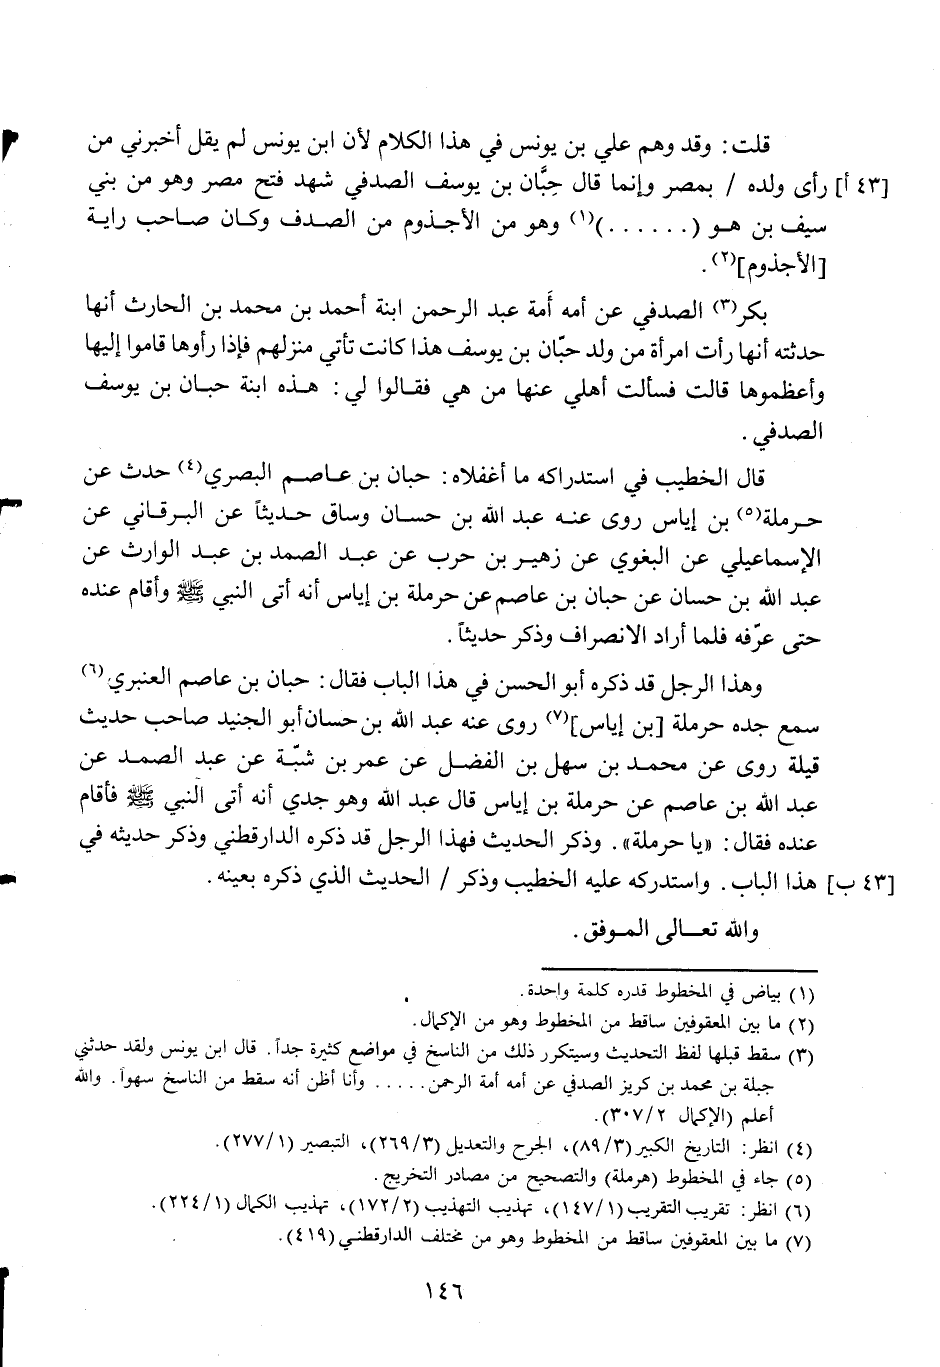 قلت: وقد وهم علي بن يونس في هذا الكلام لأن ابن يونس لم يقل أخبرني من
[٤٣ أ] رأى ولده / بمصر وإنما قال حِبَّان بن يوسف الصدفي شهد فتح مصر وهو من بني
سيف بن هـو (......)(١) وهو من الأجـذوم من الصدف وكـان صـاحب رايـة
[الأجذوم](٢).
بكر(٣) الصدفي عن أمه أَمة عبد الرحمن ابنة أحمد بن محمد بن الحارث أنها
حدثته أنها رأت امرأة من ولد حبّان بن يوسف هذا كانت تأتي منزلهم فإذا رأوها قاموا إليها
وأعظموها قالت فسألت أهلي عنها من هي فقـالوا لي: هـذه ابنة حبـان بن يوسف
الصدفي.
قال الخطيب في استدراكه ما أغفلاه: حبان بن عـاصـم البصري(٤) حدث عن
حـرملة(٥) بن إياس روى عنـه عبد الله بن حسـان وساق حـديثاً عن البرقـاني عن
الإسمـاعيلي عن البغوي عن زهيـر بن حرب عن عبـد الصمد بن عبـد الوارث عن
عبد الله بن حسان عن حبان بن عاصم عن حرملة بن إياس أنه أتى النبي ﷺ وأقام عنده
حتى عرّفه فلما أراد الانصراف وذكر حديثاً.
وهذا الرجل قد ذكره أبو الحسن في هذا الباب فقال: حبان بن عاصم العنبري(٦)
سمع جده حرملة [بن إياس](٧) روى عنه عبد الله بن حسان أبو الجنيد صاحب حديث
قيلة روى عن محمـد بن سهل بن الفضـل عن عمر بن شبّـة عن عبد الصمـد عن
عبد الله بن عاصم عن حرملة بن إياس قال عبد الله وهو جدي أنه أتى النبي ﷺ فأقام
عنده فقال: «يا حرملة». وذكر الحديث فهذا الرجل قد ذكره الدارقطني وذكر حديثه في
[٤٣ ب] هذا الباب. واستدركه عليه الخطيب وذكر / الحديث الذي ذكره بعينه.
والله تعـالى المـوفق.
(١) بياض في المخطوط قدره كلمة واحدة.
(٢) ما بين المعقوفين ساقط من المخطوط وهو من الإكمال.
(٣) سقط قبلها لفظ التحديث وسيتكرر ذلك من الناسخ في مواضع كثيرة جداً. قال ابن يونس ولقد حدثني
جبلة بن محمد بن كريز الصدفي عن أمه أمة الرحمن..... وأنا أظن أنه سقط من الناسخ سهواً. والله
أعلم (الإكمال ٣٠٧/٢).
(٤) انظر: التاريخ الكبير (٨٩/٣)، الجرح والتعديل (٢٦٩/٣)، التبصير (٢٧٧/١).
(٥) جاء في المخطوط (هرملة) والتصحيح من مصادر التخريج.
(٦) انظر: تقريب التقريب (١٤٧/١)، تهذيب التهذيب (١٧٢/٢)، تهذيب الكمال (٢٢٤/١).
(٧) ما بين المعقوفين ساقط من المخطوط وهو من مختلف الدارقطني (٤١٩).
١٤٦